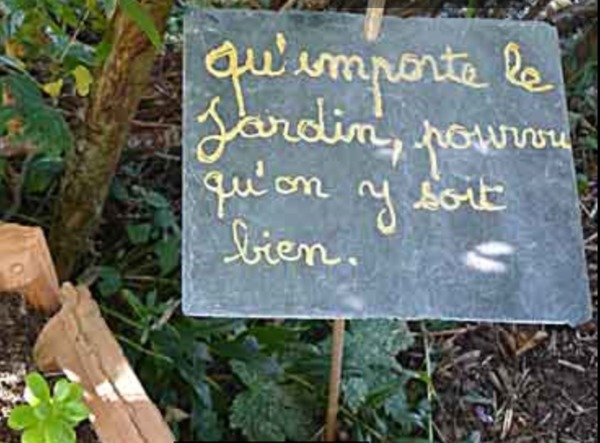 Qu'importe le
Jardin, pourvu
qu'on y soit
bien.